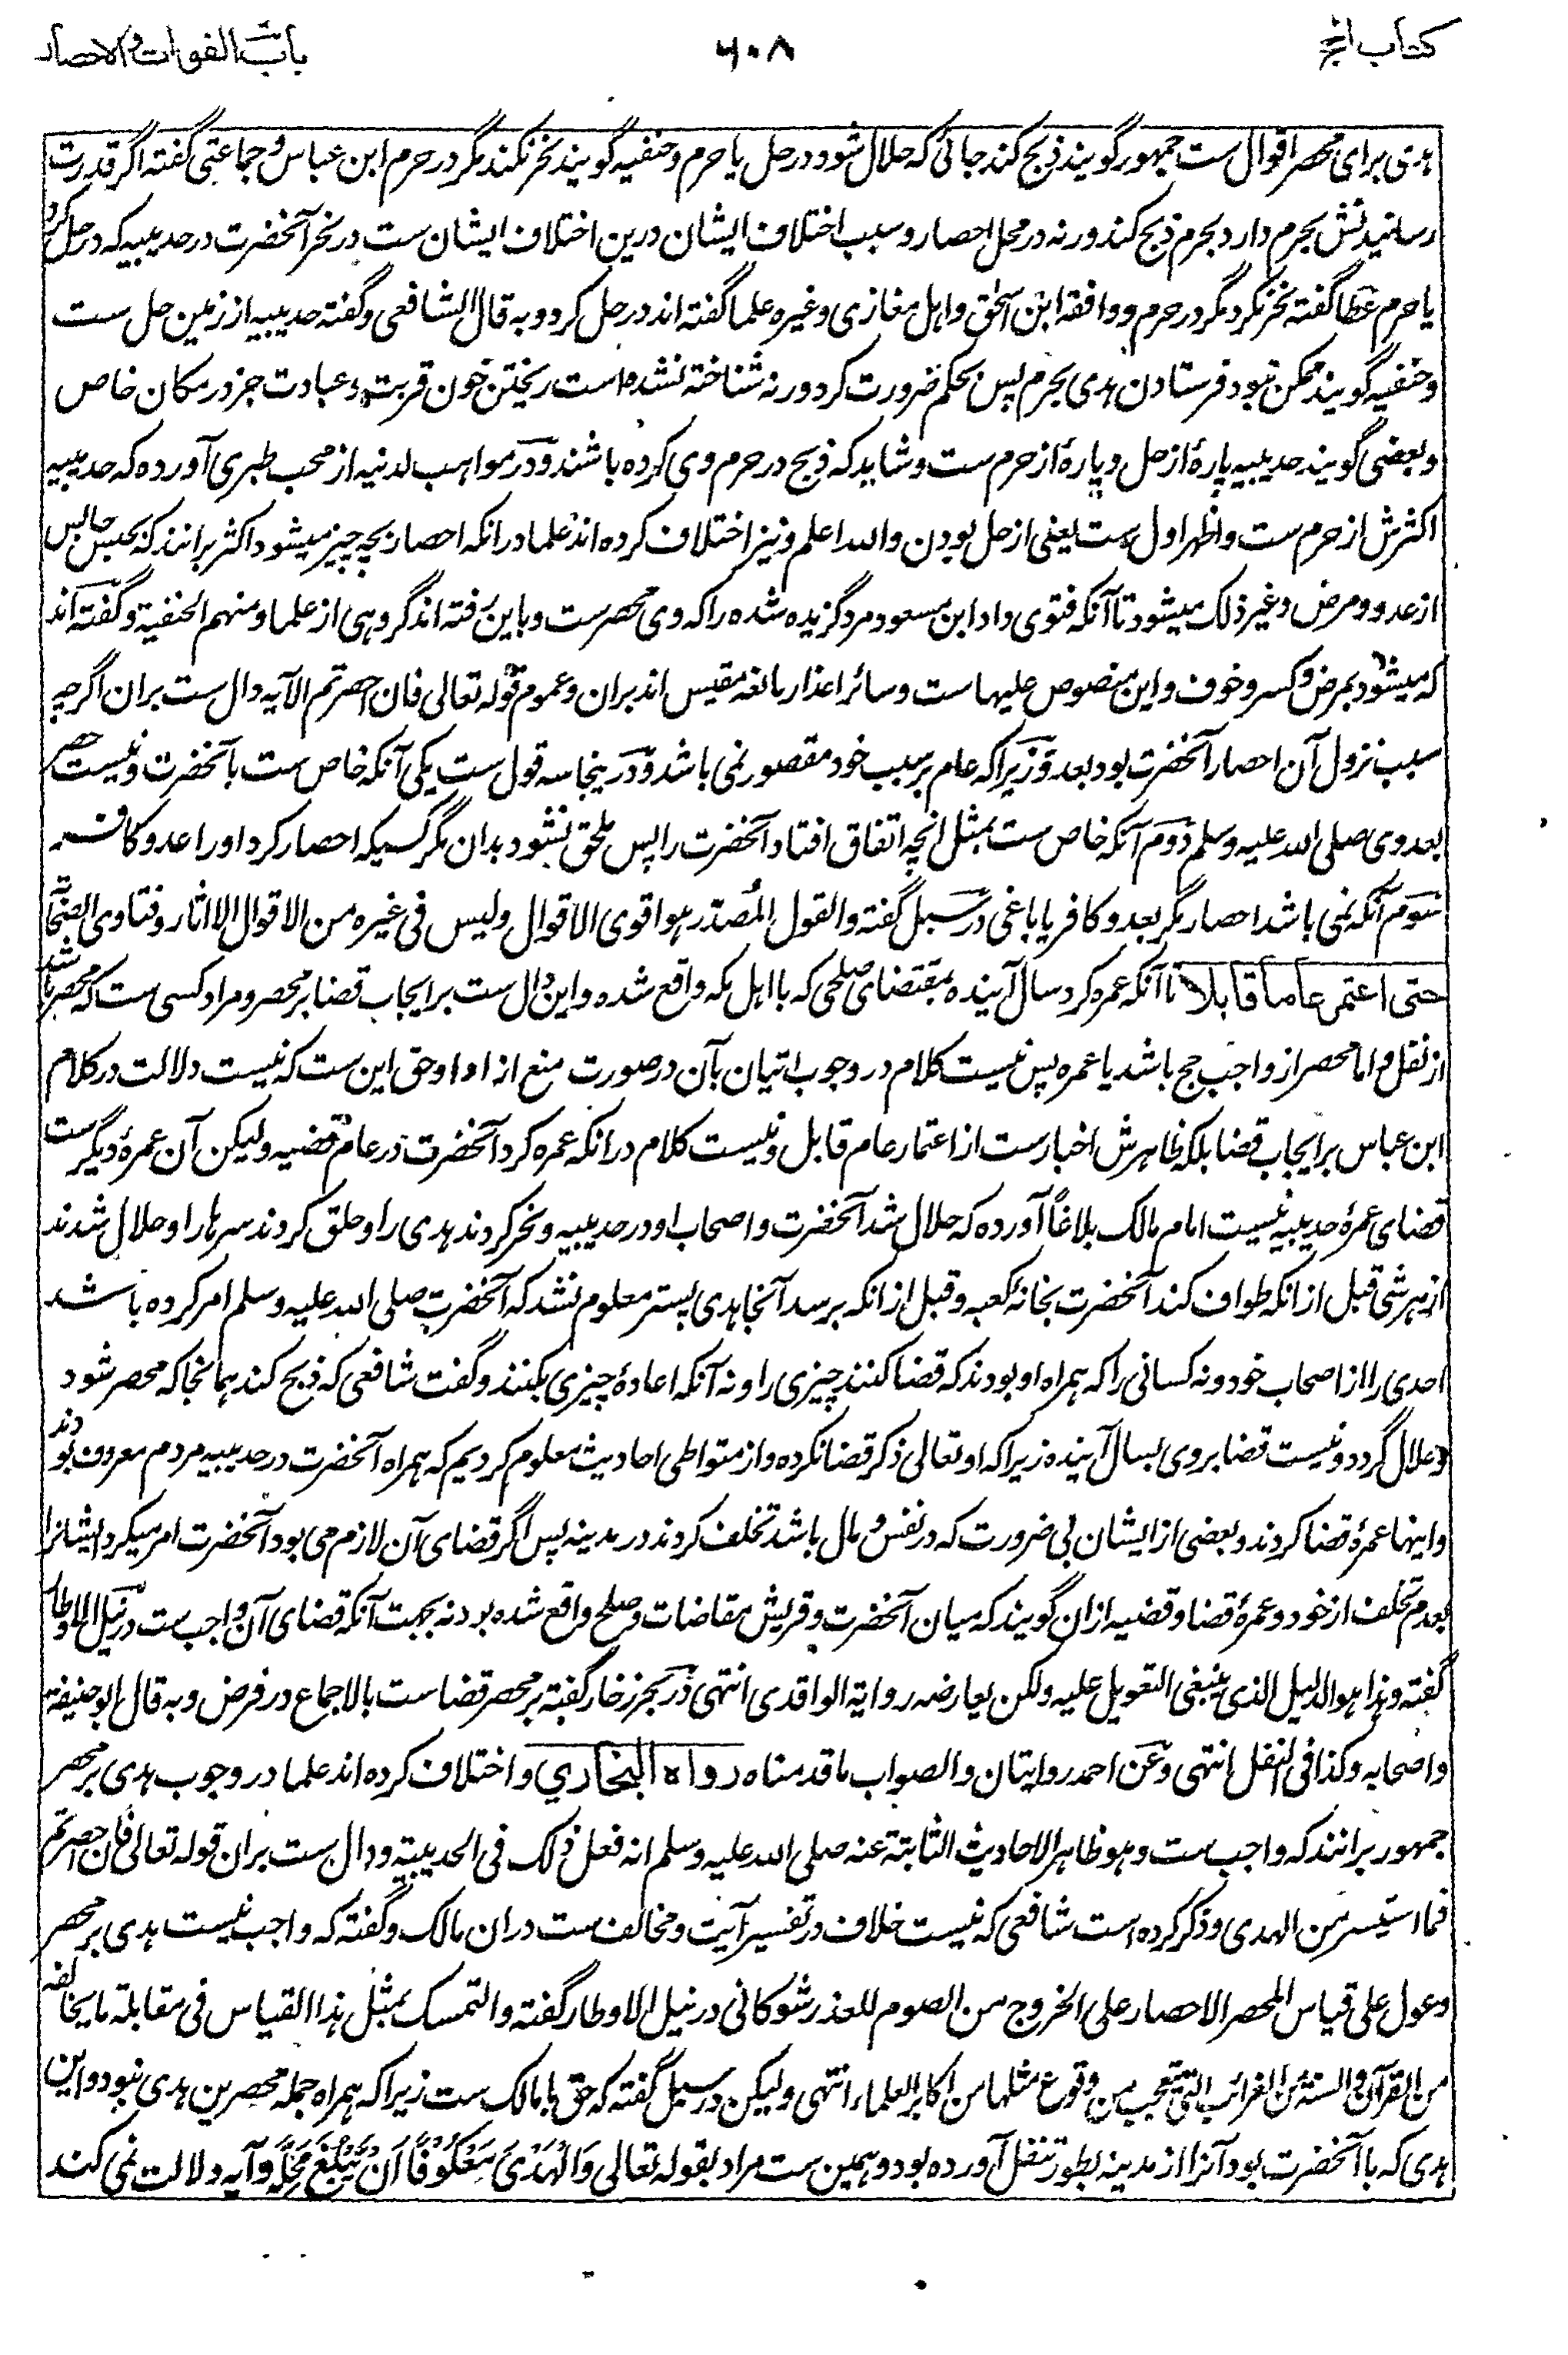 کتاب الحج
۶۰۸
باب الفوات والاحصار
ہدی برای محصر اقوال ست جمہور گویند ذبح کند جائی کہ حلال شود در حل یا حرم و حنفیہ گویند نحر نکند مگر در حرم ابن عباس و جماعتی گفتہ اگر قدرت
رسانیدنش بحرم دارد بحرم ذبح کند ورنہ در محل احصار و سبب اختلاف ایشان درین اختلاف ایشان ست در نحر آنحضرت در حدیبیہ کہ در حل کرد
یا حرم عطا گفتہ نحر نکرد مگر در حرم و وافقہ ابن اسحٰق و اہل مغازی وغیرہ علما گفتہ اند در حل کرد و بہ قال الشافعی و گفتہ حدیبیہ از زمین حل ست
و حنفیہ گویند ممکن نبود فرستادن ہدی بحرم پس بحکم ضرورت کرد ورنہ شناختہ نشدہ است ریختن خون قربت و عبادت جز در مکان خاص
و بعضی گویند حدیبیہ پارۂ از حل و پارۂ از حرم ست و شاید کہ ذبح در حرم وی کردہ باشند و در مواہب لدنیہ از محب طبری آوردہ کہ حدیبیہ
اکثرش از حرم ست و اظہر اول ست یعنی از حل بودن واللہ اعلم و نیز اختلاف کردہ اند علما در آنکہ احصار بچہ چیز میشود اکثر برانند کہ بحبس حابس
از عدو و مرض و غیر ذلک میشود تا آنکہ فتوی داد ابن مسعود مرد گزیدہ شدہ را کہ وی محصرست و باین رفتہ اند گروہی از علما و منہم الحنفیۃ و گفتہ اند
کہ میشود بمرض و کسر و خوف و این منصوص علیہا ست و سائر اعذار مانعہ مقیس اند بران و عموم قولہ تعالی فان احصرتم الآیہ دال ست بران اگرچہ
سبب نزول آن احصار آنحضرت بود بعدو زیرا کہ عام بر سبب خود مقصور نمی باشد و درینجا سہ قول ست یکی آنکہ خاص ست بآنحضرت و نیست حصر
بعد وی صلی اللہ علیہ وسلم دوم آنکہ خاص ست بمثل انچہ اتفاق افتاد آنحضرت را پس ملحق نشود بدان مگر کسیکہ احصار کرد او را عدو کافر
سوم آنکہ نمی باشد احصار مگر بعدو کافر یا باغی در سبل گفتہ والقول المصدر ہو اقوی الاقوال ولیس فی غیرہ من الاقوال الا اثار و فتاوی الصحابۃ
حتی اعتمر عاما قابلا تا آنکہ عمرہ کرد سال آیندہ بمقتضای صلحی کہ با اہل مکہ واقع شدہ و این دال ست بر ایجاب قضا بر محصر و مراد کسی ست کہ محصر باشد
از نفل و اما محصر از واجب حج باشد یا عمرہ پس نیست کلام در وجوب اتیان بآن در صورت منع از ادا و حق این ست کہ نیست دلالت در کلام
ابن عباس بر ایجاب قضا بلکہ ظاہرش اخبارست از اعتمار عام قابل و نیست کلام در آنکہ عمرہ کرد آنحضرت در عام قضیہ ولیکن آن عمرۂ دیگرست
قضای عمرۂ حدیبیہ نیست امام مالک بلاغاً آوردہ کہ حلال شد آنحضرت و اصحاب او در حدیبیہ و نحر کردند ہدی را و حلق کردند سرہا را و حلال شدند
از ہر شی قبل از انکہ طواف کند آنحضرت بخانۂ کعبہ و قبل از انکہ برسد آنجا ہدی پستر معلوم نشد کہ آنحضرت صلی اللہ علیہ وسلم امر کردہ باشد
احدی را از اصحاب خود و نہ کسانی را کہ ہمراہ او بودند کہ قضا کنند چیزی را و نہ آنکہ اعادۂ چیزی بکنند و گفت شافعی کہ ذبح کند ہمانجا کہ محصر شود
و حلال گردد و نیست قضا بروی بسال آیندہ زیرا کہ او تعالی ذکر قضا نکردہ و از متواطی احادیث معلوم کردیم کہ ہمراہ آنحضرت در حدیبیہ مردم معروف بودند
و اینہا عمرۂ قضا کردند و بعضی از ایشان بی ضرورت کہ در نفس و مال باشد تخلف کردند در مدینہ پس اگر قضای آن لازم می بود آنحضرت امر میکرد ایشانرا
بعدم تخلف از خود و عمرۂ قضا و قضیہ ازان گویند کہ میان آنحضرت و قریش مقاضات و صلح واقع شدہ بود نہ بجہت آنکہ قضای آن واجب ست در نیل الاوطار
گفتہ و ہذا ہو الدلیل الذی ینبغی التعویل علیہ ولکن یعارضہ روایۃ الواقدی انتہی در بحر زخار گفتہ بر محصر قضاست بالاجماع در فرض و بہ قال ابو حنیفۃ
و اصحابہ و کذا فی النفل انتہی و عن احمد روایتان والصواب ما قدمناہ رواہ البخاری و اختلاف کردہ اند علما در وجوب ہدی بر محصر
جمہور برانند کہ واجب ست و ہو ظاہر الاحادیث الثابتۃ عنہ صلی اللہ علیہ وسلم انہ فعل ذلک فی الحدیبیۃ و دال ست بران قولہ تعالی فان احصرتم
فما استیسر من الہدی و ذکر کردہ است شافعی کہ نیست خلاف در تفسیر آیت و مخالف ست دران مالک و گفتہ کہ واجب نیست ہدی بر محصر
و عول علی قیاس المحصر الاحصار علی الخروج من الصوم للعذر شوکانی در نیل الاوطار گفتہ والتمسک بمثل ہذا القیاس فی مقابلۃ ما یخالفہ
من القرآن والسنۃ من الغرائب التی یتعجب من وقوع مثلہا من اکابر العلماء انتہی ولیکن در سبل گفتہ کہ حق با مالک ست زیرا کہ ہمراہ جملہ محصرین ہدی نبود و این
ہدی کہ با آنحضرت بود آنرا از مدینہ بطور تنفل آوردہ بود و ہمین ست مراد بقولہ تعالی وَالْہَدْیَ مَعْکُوْفًا اَنْ یَّبْلُغَ مَحِلَّہٗ و آیہ دلالت نمی کند